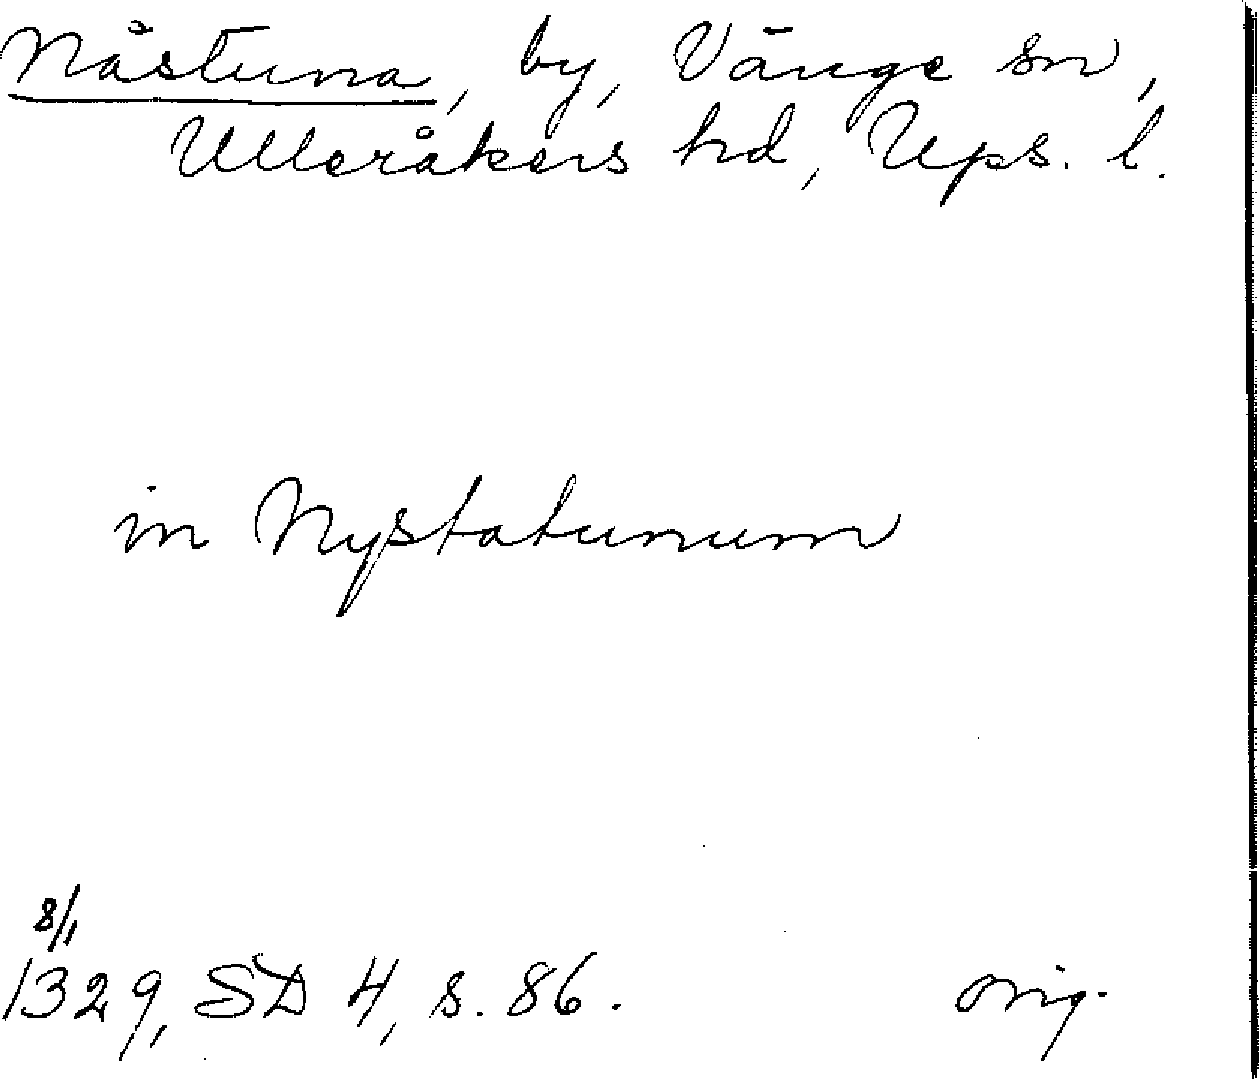 Nåstuna, by, Vänge sn,
Ulleråkers hd, Ups. l.
in Nystatunum
8/1
1329, SD 4, s. 86.
orig.